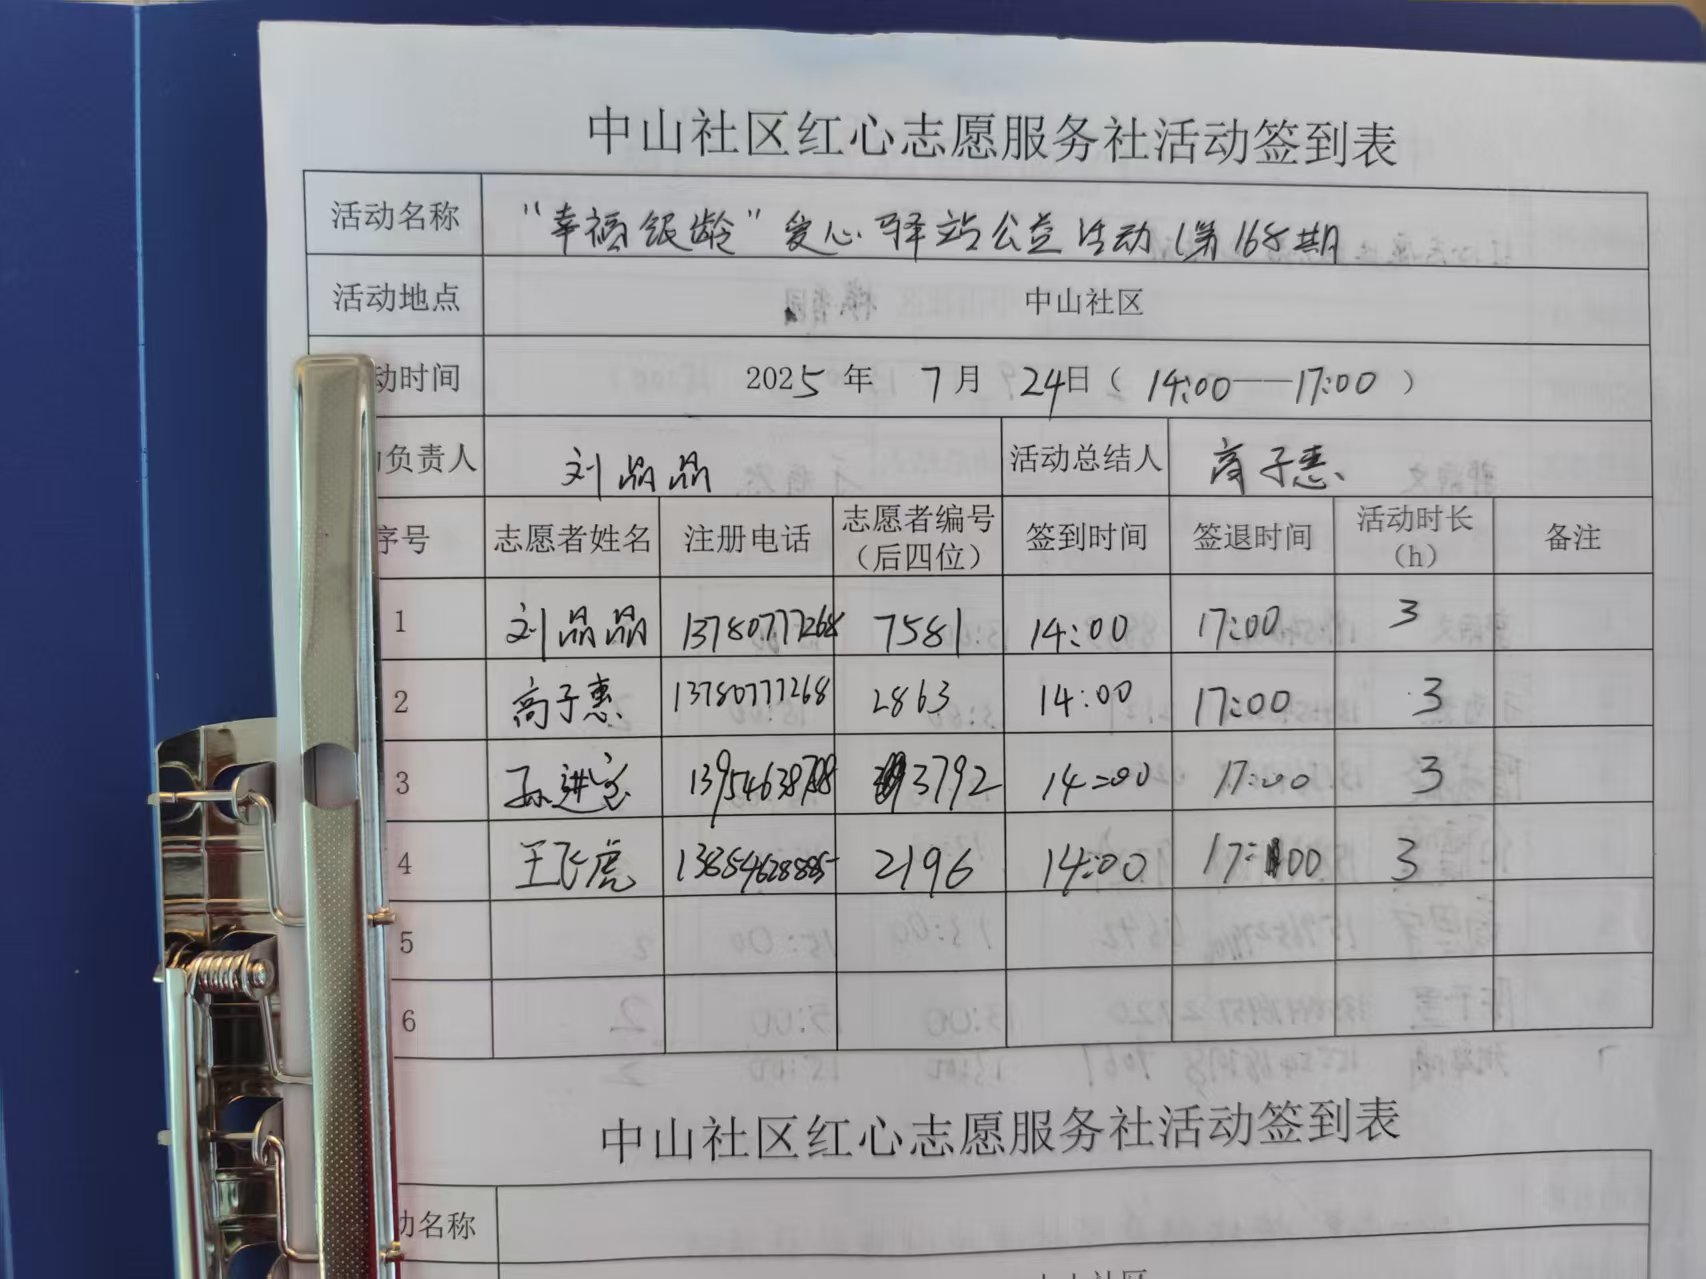 中山社区红心志愿服务社活动签到表
活动名称 “幸福银龄”爱心驿站公益活动(第168期
活动地点 中山社区
动时间 2025年 7月 24日（14:00——17:00）
负责人 刘晶晶 活动总结人 高子惠
序号 志愿者姓名 注册电话 志愿者编号（后四位） 签到时间 签退时间 活动时长（h） 备注
1 刘晶晶 13780777268 7581 14:00 17:00 3
2 高子惠 13780777268 2863 14:00 17:00 3
3 孙进宝 3792 14:00 17:00 3
4 王飞虎 2196 14:00 17:00 3
5
6
中山社区红心志愿服务社活动签到表
动名称